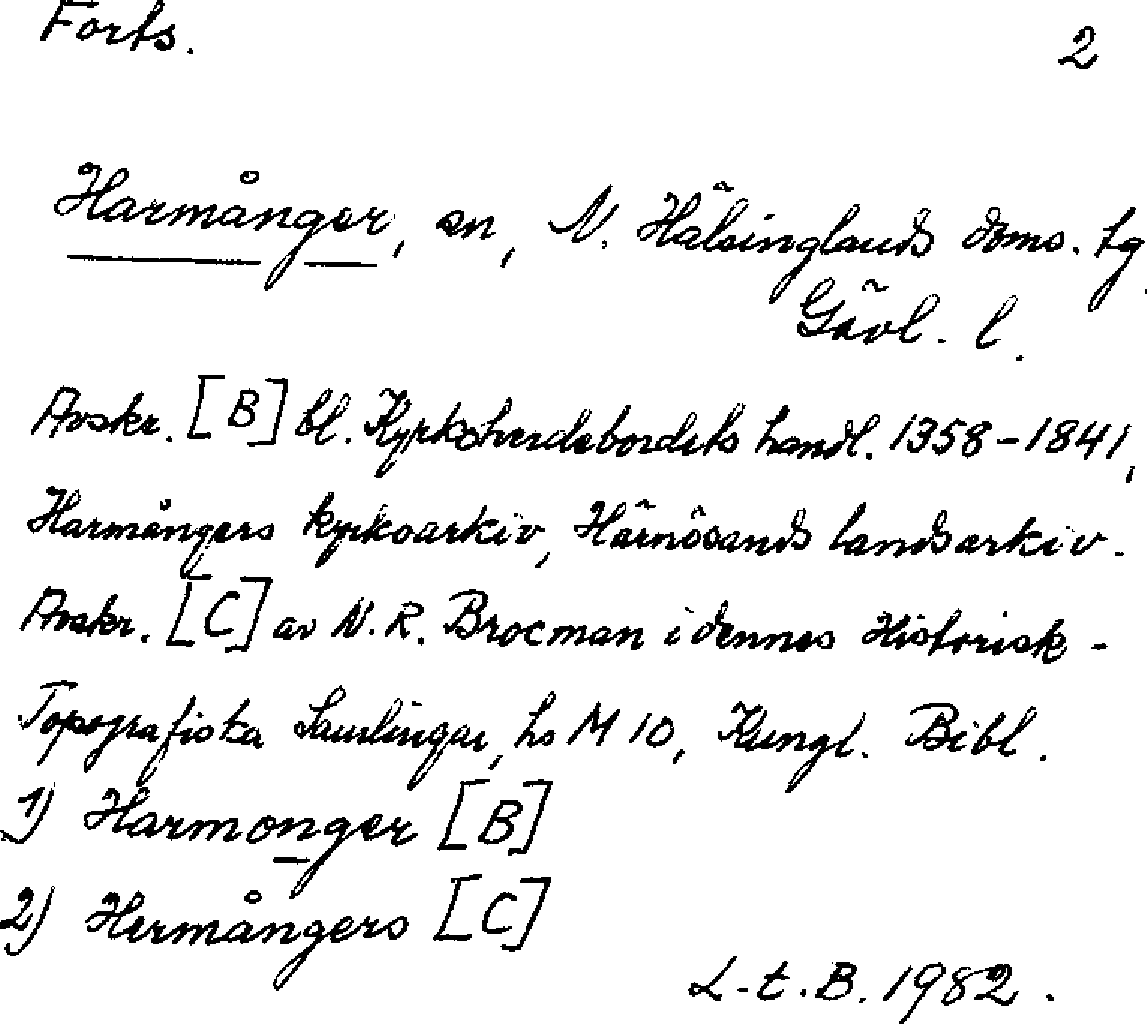 Forts. 2
Harmånger, sn, N. Hälsinglands doms. tg
Gävl. l.
Avskr. [B] bl. Kyrkoherdebordets handl. 1358-1841,
Harmångers kyrkoarkiv, Härnösands landsarkiv.
Avskr. [C] av N. R. Brocman i dennes Historisk-
Topografiska Samlingar, hs M 10, Kungl. Bibl.
1) Harmonger [B]
2) Hermångers [C]
L-t. B. 1982.